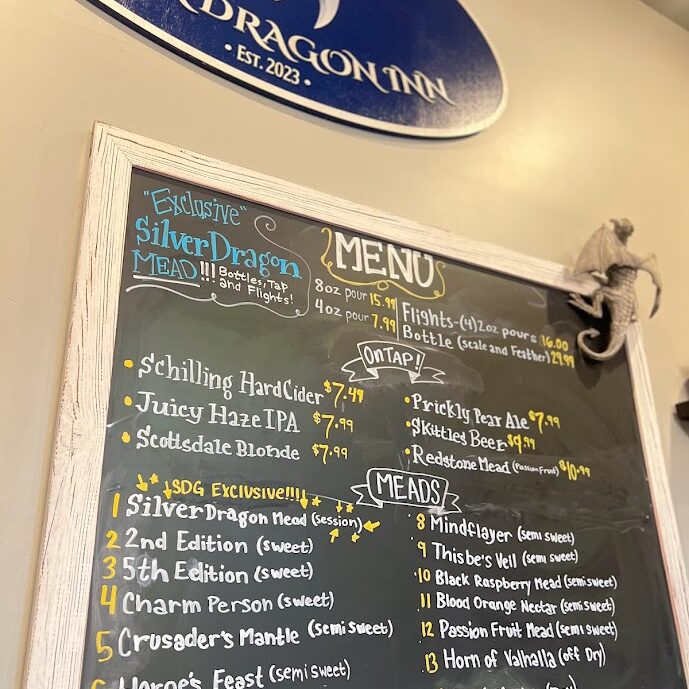 DRAGON INN
• EST. 2023 •
"Exclusive"
Silver Dragon
MEAD!!! Bottles, Tap
and Flights!
MENU
8oz pour 15.99
4oz pour 7.99
Flights-(4) 2oz pours 16.00
Bottle (scale and Feather) 29.99
ON TAP!
• Schilling Hard Cider $7.49
• Juicy Haze IPA $7.99
• Scottsdale Blonde $7.99
• Prickly Pear Ale $7.99
• Skittles Beer $9.99
• Redstone Mead (Passion Fruit) $10.99
MEADS
SDG EXCLUSIVE!!!!
1 Silver Dragon Mead (session)
2 2nd Edition (sweet)
3 5th Edition (sweet)
4 Charm Person (sweet)
5 Crusader's Mantle (semi sweet)
6 Heroe's Feast (semi sweet)
8 Mindflayer (semi sweet)
9 Thisbe's Veil (semi sweet)
10 Black Raspberry Mead (semi sweet)
11 Blood Orange Nectar (semi sweet)
12 Passion Fruit Mead (semi sweet)
13 Horn of Valhalla (off Dry)